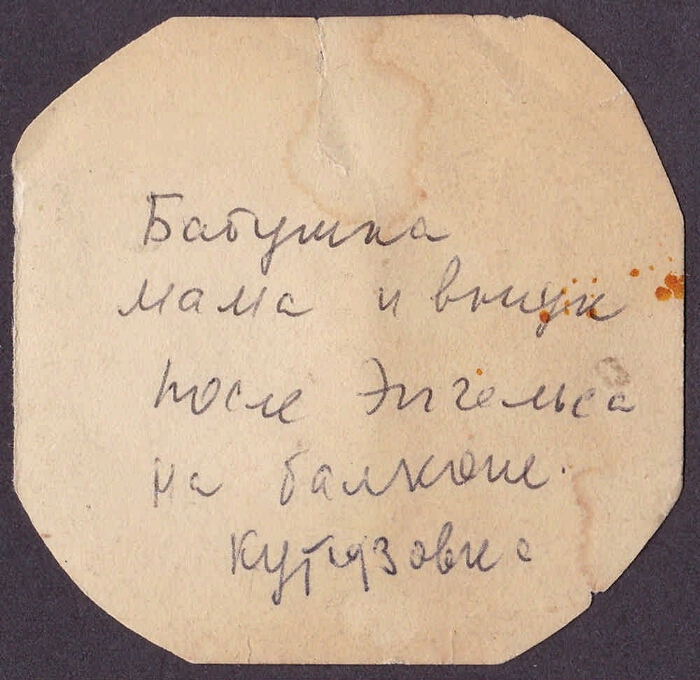 Бабушка
мама и внук
после Энгельса
на балконе.
Кутузовка